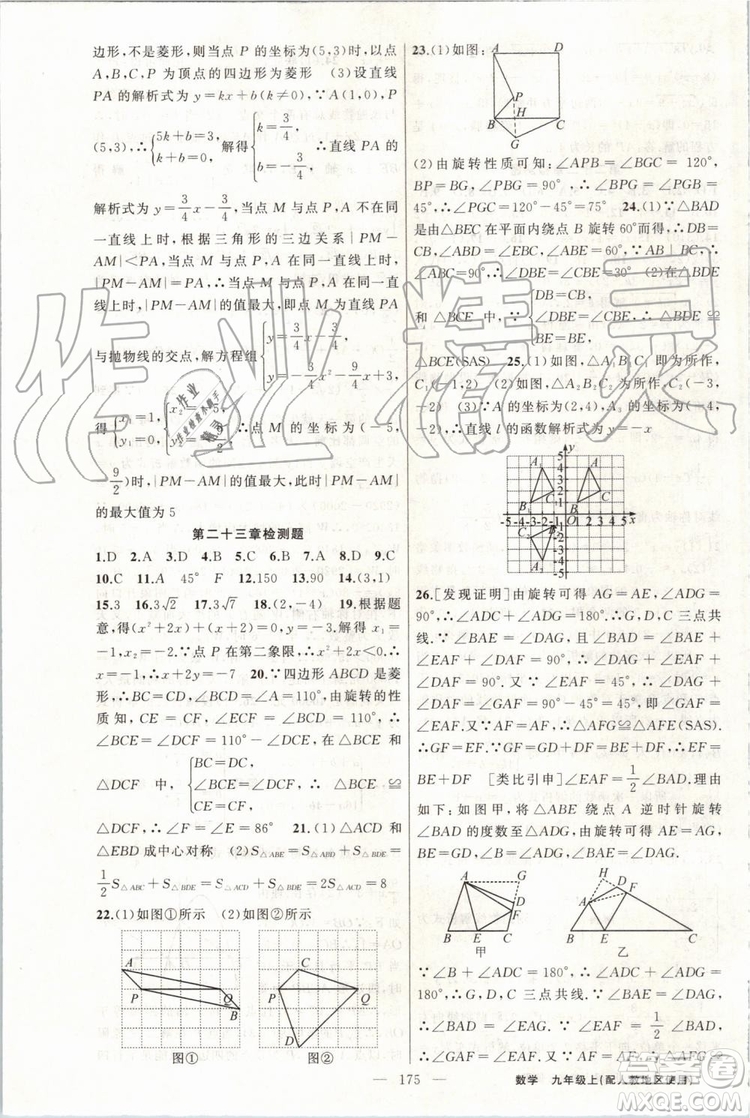 边形,不是菱形,则当点 P 的坐标为(5,3)时,以点
A,B,C,P 为顶点的四边形为菱形 (3)设直线
PA 的解析式为 y=kx+b(k≠0),∵A(1,0),P
(5,3),∴{5k+b=3, k+b=0, 解得{k=3/4, b=-3/4, ∴直线 PA 的
解析式为 y=3/4x-3/4,当点 M 与点 P,A 不在同
一直线上时,根据三角形的三边关系|PM-
AM|<PA,当点 M 与点 P,A 在同一直
线上时,|PM-AM|的值最大,即点 M 为直线 PA
与抛物线的交点,解方程组
∴点 M 的坐标为(-5,
9/2)时,|PM-AM|的值最大,此时|PM-AM|
的最大值为5
第二十三章检测题
1.D 2.A 3.D 4.C 5.A 6.B 7.D 8.D 9.C
10.C 11.A 45° F 12.150 13.90 14.(3,1)
15.3 16.3√2 17.√2 18.(2,-4) 19.根据题
意,得(x²+2x)+(x+2)=0.解得 x₁=
-1,x₂=-2.∵点 P 在第二象限,∴x=-1.∴
x+y=-7 20.∵四边形 ABCD 是菱
形,∴BC=CD,∠BCD=∠A=110°,由旋转的性
质知,CE=CF,∠ECF=∠BCD=110°,∴
∠BCE=∠DCF=110°-∠DCE,在△BCE 和
△DCF 中,{BC=DC, ∠BCE=∠DCF, CE=CF, ∴△BCE≌
△DCF,∴∠F=∠E=86° 21.(1)△ACD 和
△EBD 成中心对称 (2)S△ABE=S△ABD+S△BDE=
1/2S△ABC+S△ACD=2S△ABC=8
22.(1)如图①所示 (2)如图②所示
A P Q B
图①
C P Q D
图②
23.(1)如图:
A D P H B C G
(2)由旋转性质可知:∠APB=∠BGC=120°,
BP=BG,∠PBG=90°,∴∠BGP=
45°,∴∠PGC=120°-45°=75° 24.(1)∵△BAD
是由△BEC 在平面内绕点 B 旋转60°而得,∴DB=
CB,∠ABD=∠EBC,∠ABE=60°,∵
∠ABC=90°,∴∠DBE=∠CBE=30° (2)在△BDE
和△BCE 中,∵{DB=CB, ∠DBE=∠CBE, BE=BE, ∴△BDE≌
△BCE(SAS) 25.(1)如图,△A₁B₁C₁即为所作,
C₁(-1,2) (2)如图,△A₂B₂C₂即为所作,C₂(-3,
-2) (3)∵A 的坐标为(2,4),A₃的坐标为(-4,
-2),∴直线 l 的函数解析式为 y=-x
26.[发现证明]由旋转可得 AG=AE,∠ADG=
90°,∴∠ADC+∠ADG=180°,∴G,D,C 三点共
线.∵∠BAE=∠DAG,∴∠DAG+∠EAF+
∠DAF=∠BAE+∠EAF+∠DAF=∠BAD=
90°.又∵∠EAF=45°,∴∠DAG+∠EAF+
∠DAF-∠EAF=90°-45°=45°,即∠GAF=
∠EAF.又∵AF=AF,∴△AFG≌△AFE(SAS).
∴GF=EF.∵GF=DG+DF=BE+DF,∴EF=
BE+DF [类比引申]∠EAF=1/2∠BAD.理由
如下:如图甲,将△ABE 绕点 A 逆时针旋转
∠BAD 的度数至△ADG.由旋转可得 AE=AG,
∠B=∠ADG,BE=DG,∠BAE=∠DAG.
A G D F B E C
甲
H D F A B E C
乙
∵∠B+∠ADC=180°,∴∠ADC+∠ADG=
180°.∴G,D,C 三点共线.∵∠BAE=∠DAG,
∴∠BAD=∠EAG.∵∠EAF=1/2∠BAD,
∴∠GAF=∠EAF=1/2∠EAG.又∵AF=AF,
— 175 — 数学 九年级上(配人教地区使用)